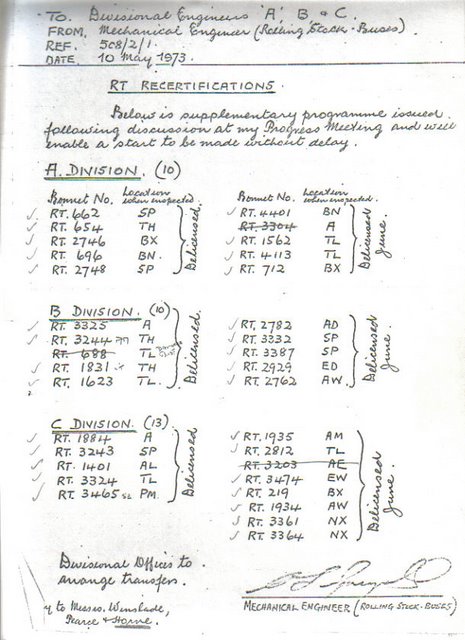 TO. Divisional Engineers 'A' B & C.
FROM. Mechanical Engineer (Rolling Stock - Buses)
REF. 508/2/1.
DATE 10 May 1973.
RT RECERTIFICATIONS.
Below is supplementary programme issued
following discussion at my Progress Meeting and will
enable a start to be made without delay.
A. DIVISION. (10)
Bonnet No. Location when inspected Bonnet No. Location when inspected
RT. 662 SP RT. 4401 BN
RT. 654 TH RT. 3304 A
RT. 2746 BX RT. 1562 TL
RT. 696 BN. RT. 4113 TL
RT. 2748 SP RT. 712 BX
Delicensed Delicensed June.
B DIVISION. (10)
RT. 3325 A RT. 2782 AD
RT. 3244 TH RT. 3332 SP
RT. 688 TL RT. 3387 SP
RT. 1831 TH RT. 2929 ED
RT. 1623 TL. RT. 2762 AW.
Delicensed. Delicensed June.
C DIVISION. (13)
RT. 1884 A RT. 1935 AM
RT. 3243 SP RT. 2812 TL
RT. 1401 AL RT. 3203 AE
RT. 3324 TL RT. 3474 EW
RT. 3465 PM. RT. 219 BX
RT. 1934 AW
RT. 3361 NX
RT. 3364 NX
Delicensed Delicensed June.
Divisional Offices to
arrange transfers.
MECHANICAL ENGINEER (ROLLING STOCK - BUSES)
to Messrs. Winslade,
Pearce & Horne.